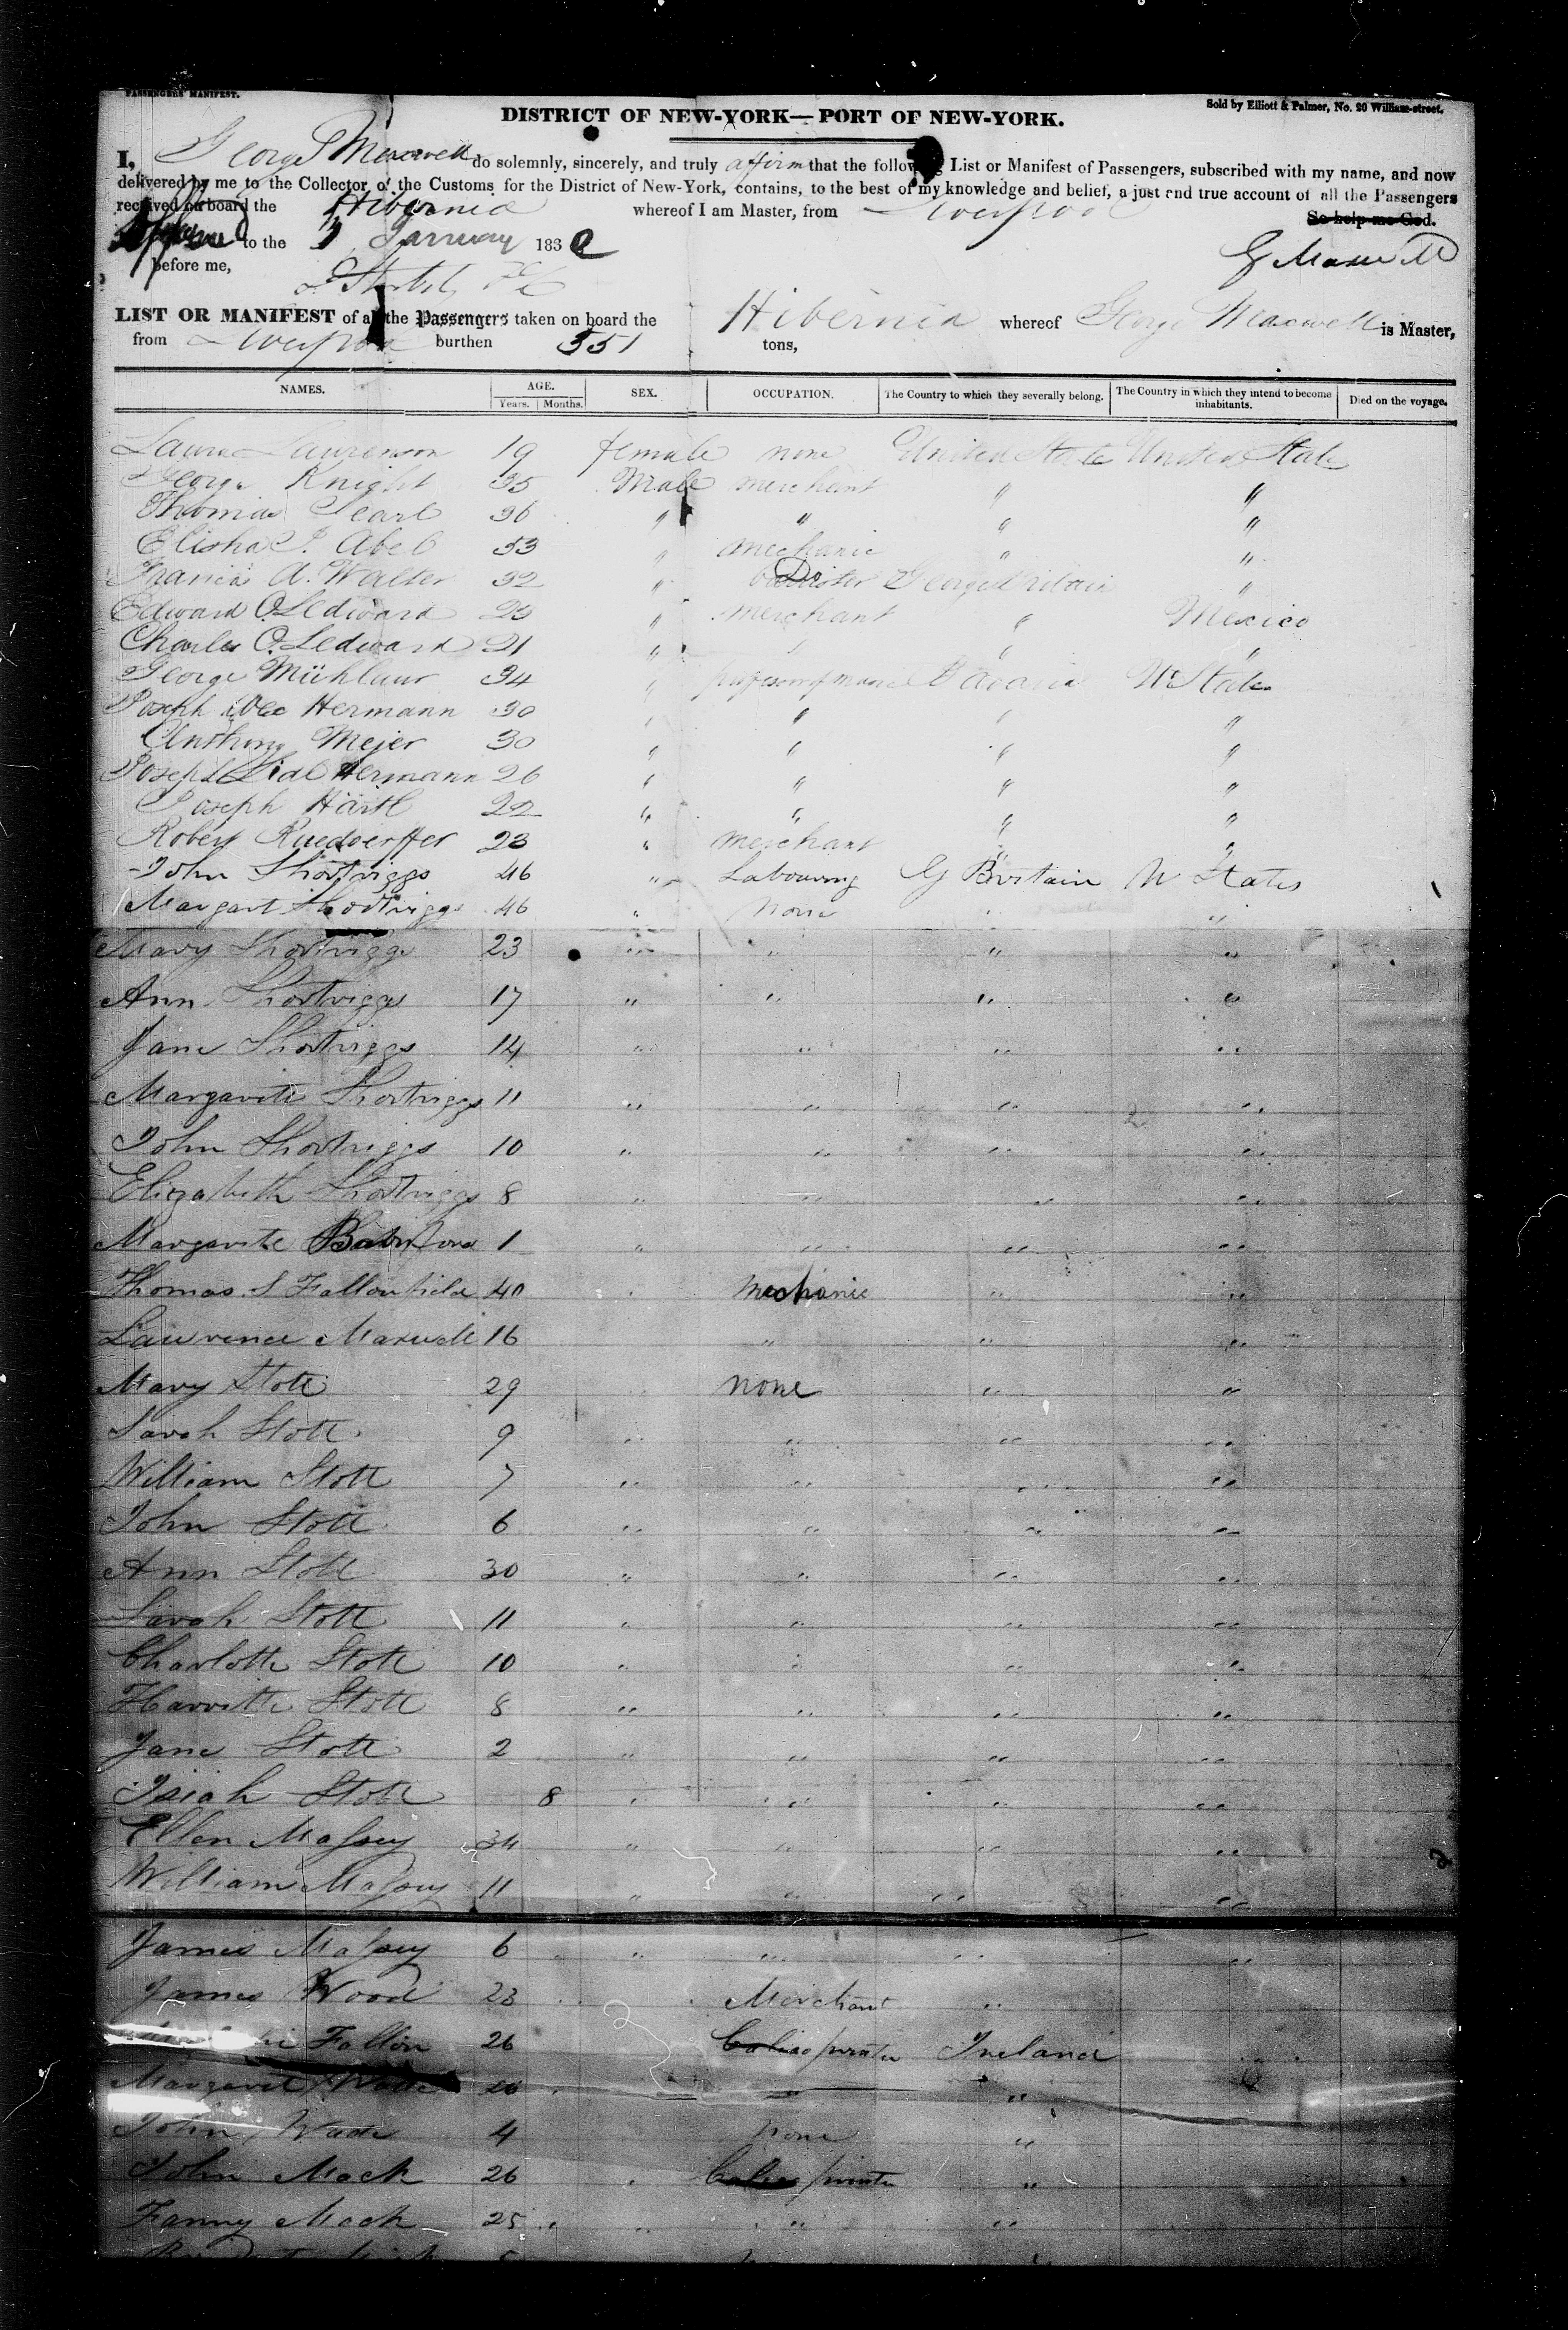 PASSENGERS' MANIFEST.
Sold by Elliott & Palmer, No. 20 William-street.
DISTRICT OF NEW-YORK—PORT OF NEW-YORK.
I, George Maxwell do solemnly, sincerely, and truly affirm that the following List or Manifest of Passengers, subscribed with my name, and now
delivered by me to the Collector of the Customs for the District of New-York, contains, to the best of my knowledge and belief, a just and true account of all the Passengers
received on board the Hibernia whereof I am Master, from Liverpool
So help me God.
to the January 183
G Maxwell
before me,
LIST OR MANIFEST of all the Passengers taken on board the Hibernia whereof George Maxwell is Master,
from Liverpool burthen 351 tons,
NAMES. AGE. SEX. OCCUPATION. The Country to which they severally belong. The Country in which they intend to become inhabitants. Died on the voyage.
Years. Months.
Laura 19 female none United State United State
George Knight 35 Male merchant " "
Thomas Searl 36 " " " "
Elisha Abel 33 " mechanic " "
Francis A. Walter 32 " "
Edward O. Ledward 25 " merchant " Mexico
Charles O. Ledward 21 " " " "
George 34 " professor of music Bavaria U States
Joseph Hermann 30 " " " "
Anthony Mejer 30 " " " "
Joseph Hermann 26 " " " "
Joseph Härtl 22 " " " "
Robert Ruedoerffer 23 " merchant " "
John Shortriggs 46 " Labouring G Britain U States
Margart Shortriggs 46 " none " "
Mary Shortriggs 23 " " " "
Ann Shortriggs 17 " " " "
Jane Shortriggs 14 " " " "
Margarite Shortriggs 11 " " " "
John Shortriggs 10 " " " "
Elizabeth Shortriggs 8 " " " "
Margarite 1 " " " "
Thomas S Fallowfield 40 " mechanic " "
Lawrence Maxwell 16 " " "
Mary Stott 29 " none " "
Sarah Stott 9 " " " "
William Stott 7 " " " "
John Stott 6 " " " "
Ann Stott 30 " " " "
Sarah Stott 11 " " " "
Charlotte Stott 10 " " " "
Harritte Stott 8 " " " "
Jane Stott 2 " " " "
Isiah Stott 8 " " " "
Ellen Massey 34 " " " "
William Massey 11 " " " "
James Massey 6 " " " "
James Wood 23 Merchant "
Fallon 26 Calico printer Ireland "
Margaret 26 "
John Wade 4 none "
John Mack 26 " Calico printer "
Fanny Mack 25 " " "